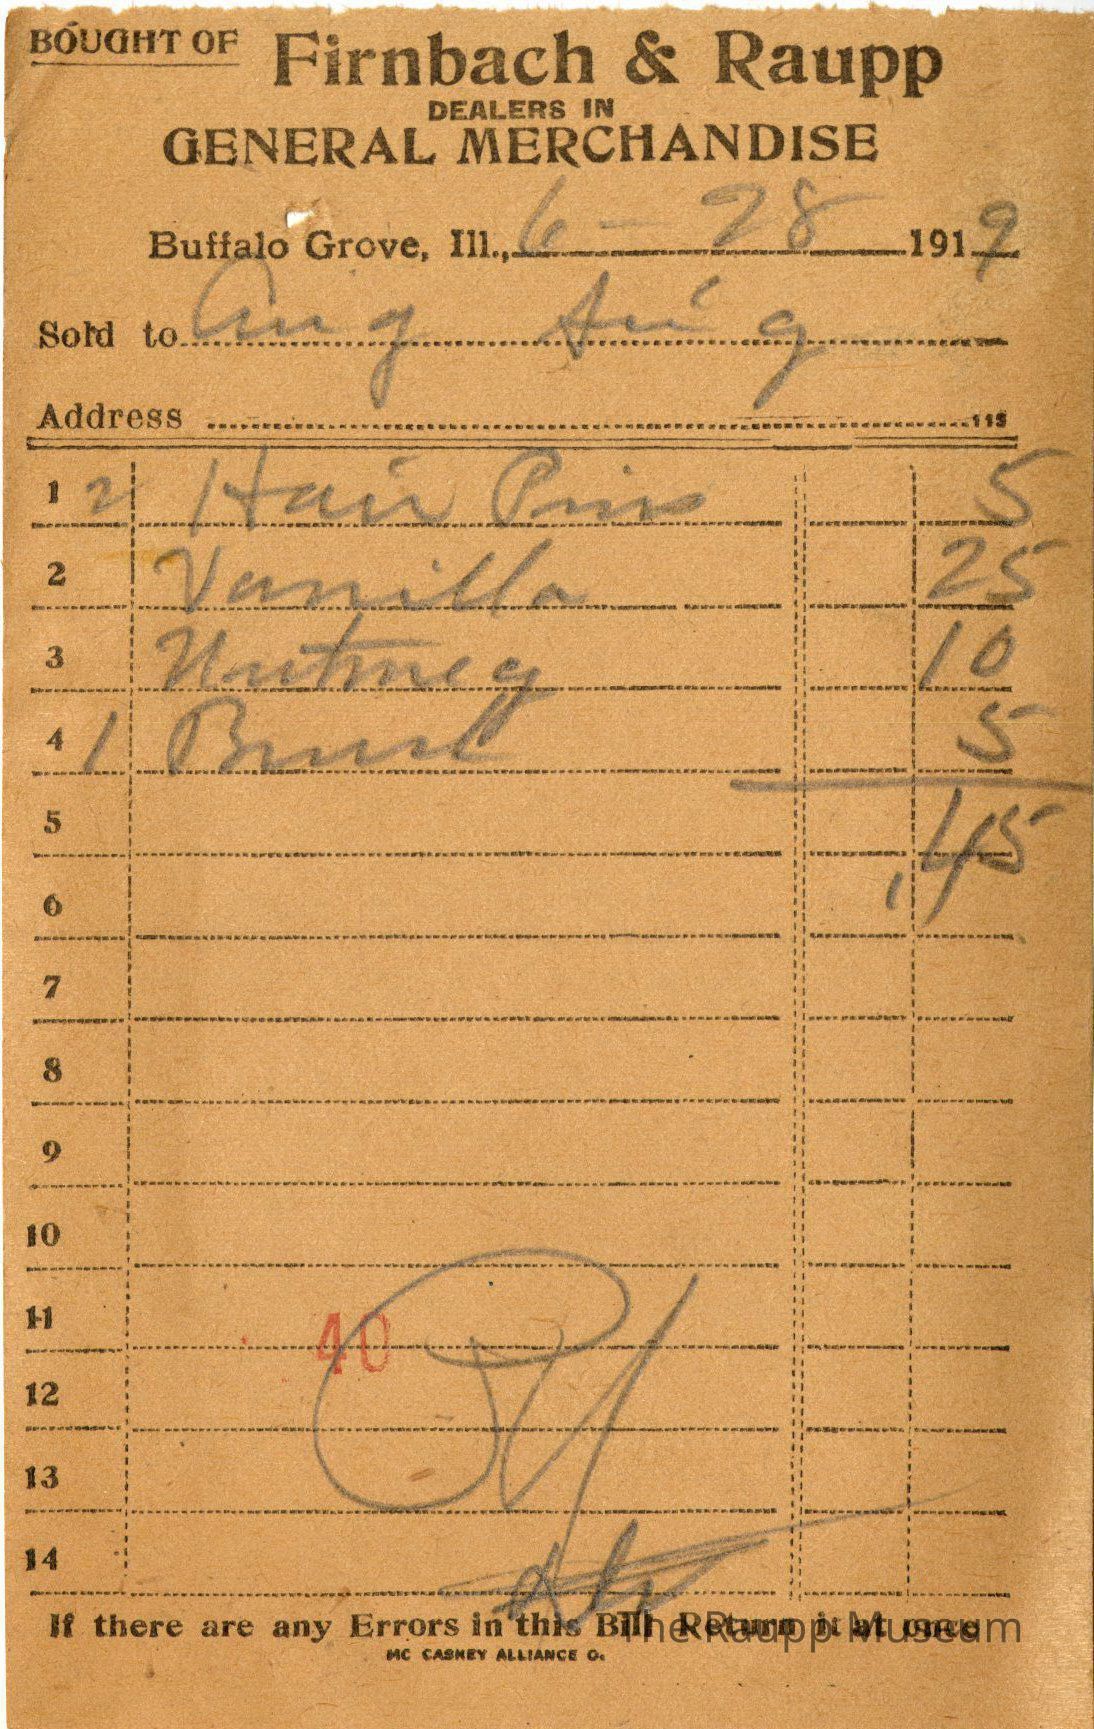 BOUGHT OF Firnbach & Raupp
DEALERS IN
GENERAL MERCHANDISE
Buffalo Grove, Ill., 6 - 28 1919
Sold to Aug
Address 115
1 2 Hair Pins 5
2 Vanilla 25
3 Nutmeg 10
4 1 Brush 5
5 .45
6
7
8
9
10
11 40
12
13
14
If there are any Errors in this Bill Return it at once
The Raupp Museum
MC CASKEY ALLIANCE O.